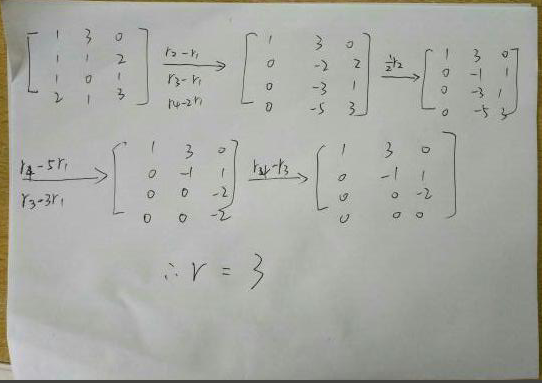 [1 3 0; 1 1 2; 1 0 1; 2 1 3] r2-r1 r3-r1 r4-2r1 → [1 3 0; 0 -2 2; 0 -3 1; 0 -5 3] ½r2 → [1 3 0; 0 -1 1; 0 -3 1; 0 -5 3]
r4-5r1 r3-3r1 → [1 3 0; 0 -1 1; 0 0 -2; 0 0 -2] r4-r3 → [1 3 0; 0 -1 1; 0 0 -2; 0 0 0]
∴ r = 3